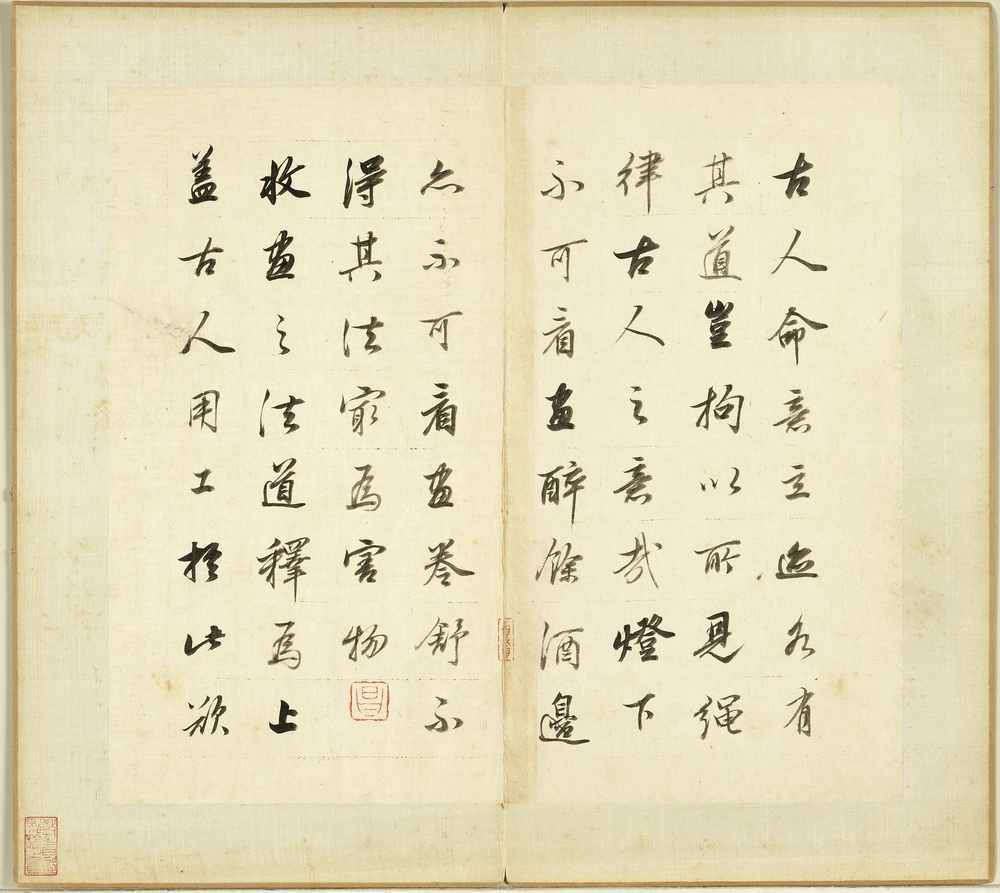 古人命意立迹各有
其道豈拘以所見繩
律古人之意哉燈下
不可看畫醉餘酒邊
亦不可看畫卷舒不
得其法㝡為害物
收畫之法道釋為上
盖古人用工於此欲